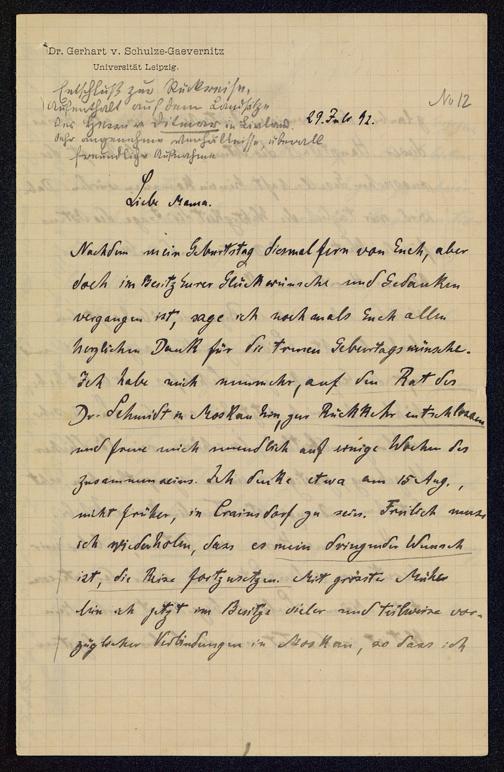 Dr. Gerhart v. Schulze-Gaevernitz
Universität Leipzig.
Entschluß zur Rückreise,
Aufenthalt auf dem Landsitze
des Herrn v. Vilmar in Livland.
Sehr angenehme Verhältnisse, überall
freundliche Aufnahme
No 12
29. Juli 92.
Liebe Mama.
Nachdem mein Geburtstag diesmal fern von Euch, aber
doch im Besitz Eurer Glückwünsche und Gedanken
vergangen ist, sage ich nochmals Euch allen
herzlichen Dank für die treuen Geburtstagswünsche.
Ich habe mich nunmehr, auf den Rat des
Dr. Schmidt in Moskau hin, zur Rückkehr entschlossen
und freue mich unendlich auf einige Wochen des
zusammenseins. Ich denke etwa am 15 Aug.,
nicht früher, in Crainsdorf zu sein. Freilich muss
ich wiederholen, dass es mein dringender Wunsch
ist, die Reise fortzusetzen. Mit grösster Mühe
bin ich jetzt im Besitze vieler und teilweise vor-
züglicher Verbindungen in Moskau, so dass ich